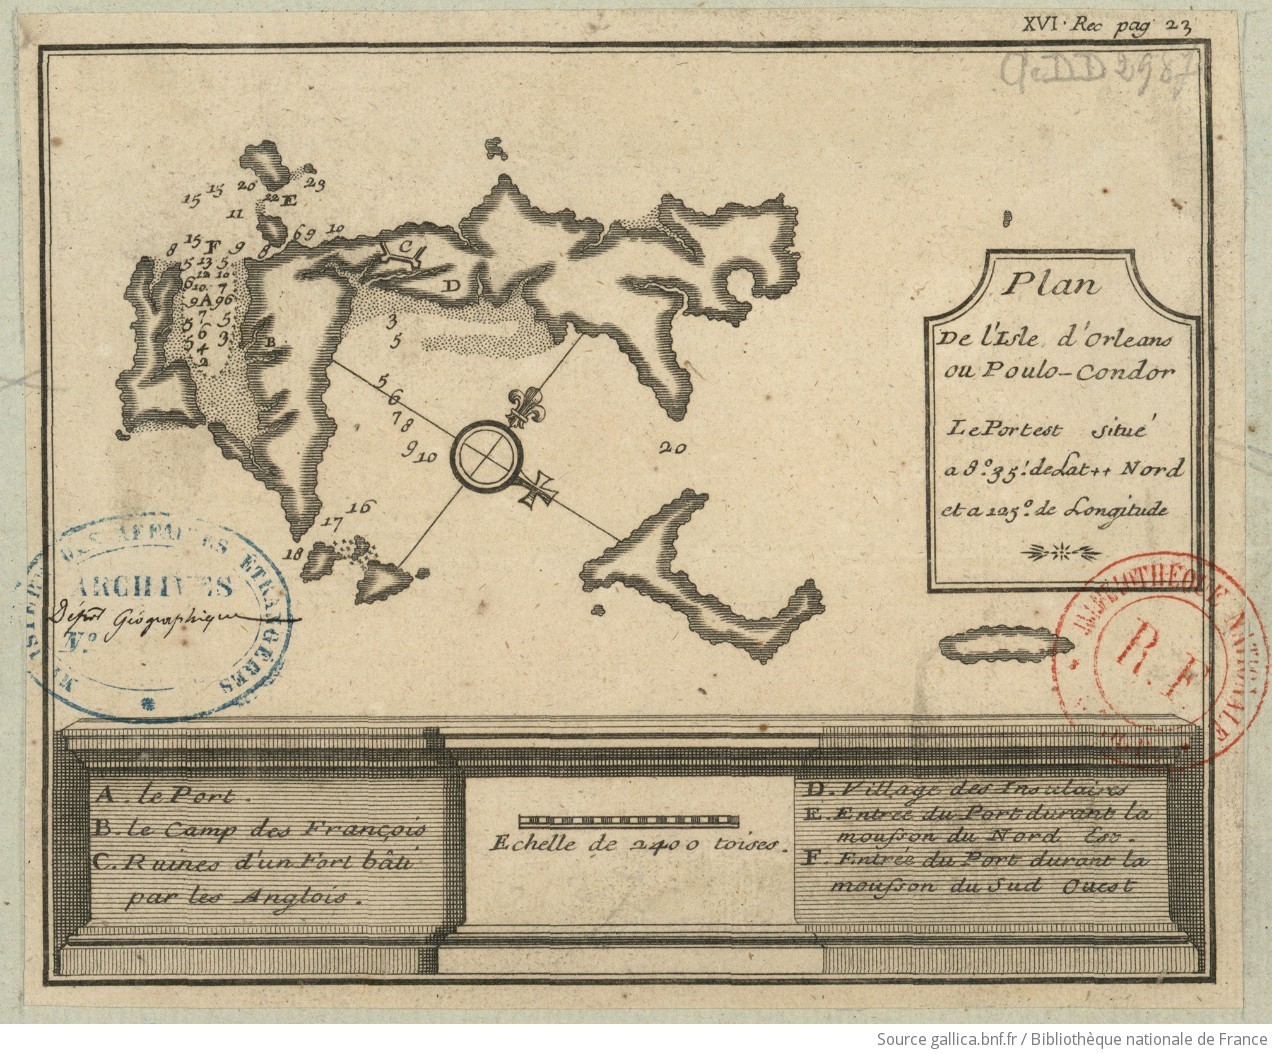 XVI. Rec pag 23
Ge DD 2987
15 15 20 22 E 23
11
69 10
8 15 F 9 8
5 13 5
12 10
6 10 7
9 A 96
7 5
5 6 3
5 4
2
B
C
D
3
5
5
6
7 8
9 10
20
16
17
18
Plan
De l'Isle d'Orleans
ou Poulo-Condor
Le Port est situé
a 8°. 35'. de Lat++ Nord
et a 125°. de Longitude
MINISTÈRE DES AFFAIRES ÉTRANGÈRES
ARCHIVES
Dépôt Géographique
N.°
BIBLIOTHÈQUE NATIONALE
R F
A. le Port.
B. le Camp des François
C. Ruines d'un Fort bâti
par les Anglois.
Echelle de 2400 toises.
D. Village des Insulaires
E. Entrée du Port durant la
mousson du Nord Est.
F. Entrée du Port durant la
mousson du Sud Ouest
Source gallica.bnf.fr / Bibliothèque nationale de France